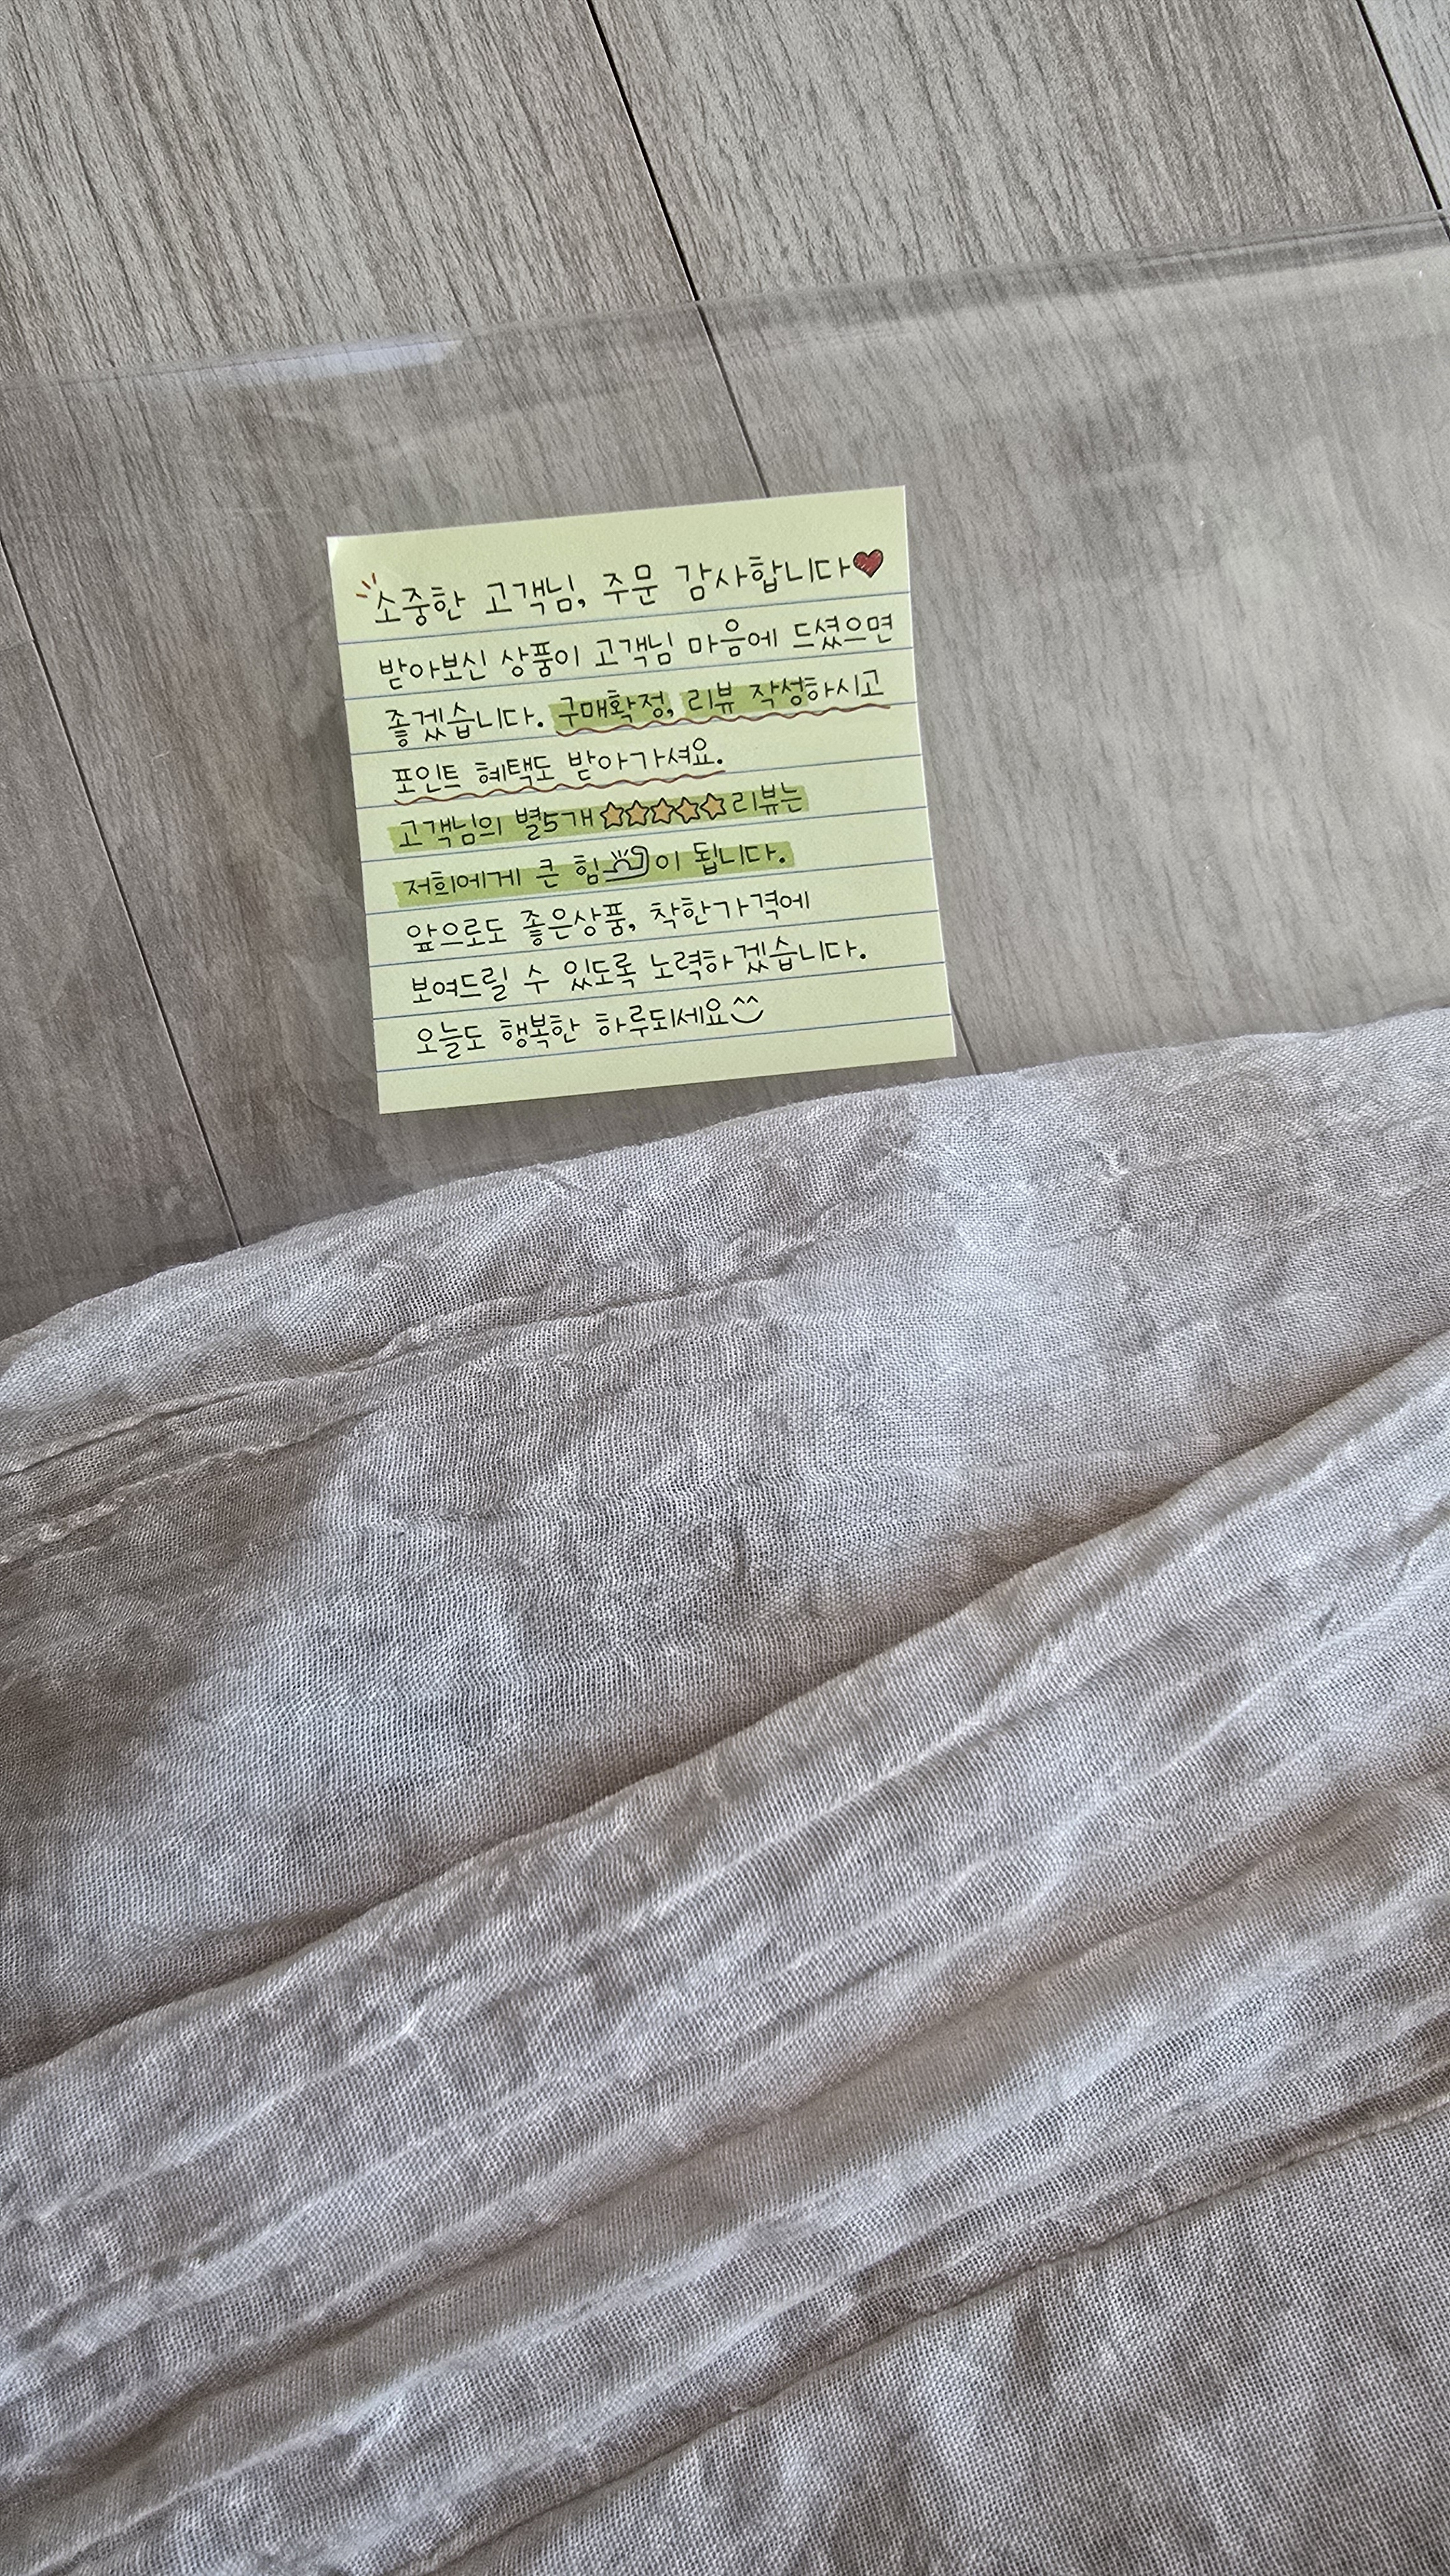 소중한 고객님, 주문 감사합니다❤
받아보신 상품이 고객님 마음에 드셨으면
좋겠습니다. 구매확정, 리뷰 작성하시고
포인트 혜택도 받아가셔요.
고객님의 별5개 ☆☆☆☆☆ 리뷰는
저희에게 큰 힘이 됩니다.
앞으로도 좋은상품, 착한가격에
보여드릴 수 있도록 노력하겠습니다.
오늘도 행복한 하루되세요^^